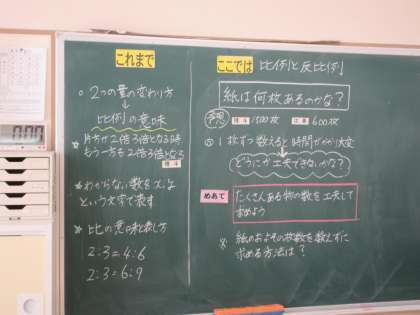 これまで
○ 2つの量の変わり方
↓
比例の意味
★ 片方が2倍3倍となる時
もう一方も2倍3倍となる
★ わからない数をx、y
という文字で表す
★ 比の意味と表し方
2:3=4:6
2:3=6:9
ここでは 比例と反比例
紙は何枚あるのかな?
予想 1500枚 600枚
1枚ずつ数えると時間がかかり大変
どうにか工夫できないかな?
めあて
たくさんある物の数を工夫して
求めよう
※ 紙のおよその枚数を数えずに
求める方法は?